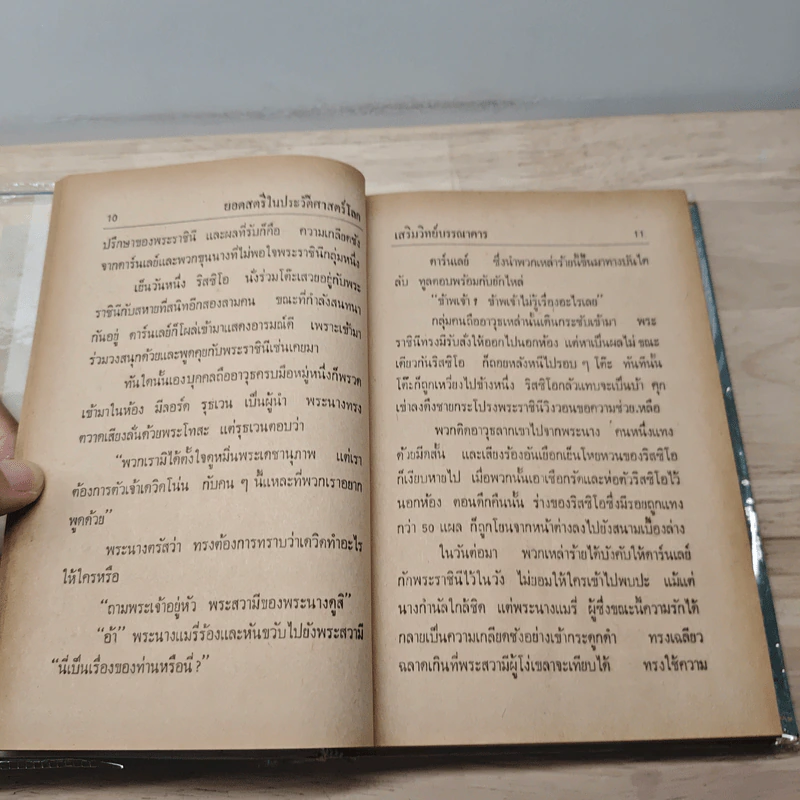 10 ยอดสตรีในประวัติศาสตร์โลก
ปรึกษาของพระราชินี และผลที่รับก็คือ ความเกลียดชัง
จากดาร์นเลย์และพวกขุนนางที่ไม่พอใจพระราชินีกลุ่มหนึ่ง
เย็นวันหนึ่ง ริสซิโอ นั่งร่วมโต๊ะเสวยอยู่กับพระ
ราชินีกับสหายที่สนิทอีกสองสามคน ขณะที่กำลังสนทนา
กันอยู่ ดาร์นเลย์ก็โผล่เข้ามาแสดงอารมณ์ดี เพราะเข้ามา
ร่วมวงสนุกด้วยและพูดคุยกับพระราชินีเช่นเคยมา
ทันใดนั้นเองบุคคลถืออาวุธครบมือหมู่หนึ่งก็พรวด
เข้ามาในห้อง มีลอร์ด รุธเวน เป็นผู้นำ พระนางทรง
ตวาดเสียงลั่นด้วยพระโทสะ แต่รุธเวนตอบว่า
“พวกเรามิได้ตั้งใจดูหมิ่นพระเดชานุภาพ แต่เรา
ต้องการตัวเจ้าเดวิดโน่น กับคน ๆ นี้แหละที่พวกเราอยาก
พูดด้วย”
พระนางตรัสว่า ทรงต้องการทราบว่าเดวิดทำอะไร
ให้ใครหรือ
“ถามพระเจ้าอยู่หัว พระสวามีของพระนางดูสิ”
“อ้า” พระนางแมรี่ร้องและหันขวับไปยังพระสวามี
“นี่เป็นเรื่องของท่านหรือนี่ ?”
เสริมวิทย์บรรณาคาร 11
ดาร์นเลย์ ซึ่งนำพวกเหล่าร้ายนี้ขึ้นมาทางบันได
ลับ ทูลตอบพร้อมกับยักไหล่
“ข้าพเจ้า ! ข้าพเจ้าไม่รู้เรื่องอะไรเลย”
กลุ่มคนถืออาวุธเหล่านั้นเดินกระชับเข้ามา พระ
ราชินีทรงมีรับสั่งให้ออกไปนอกห้อง แต่หาเป็นผลไม่ ขณะ
เดียวกันริสซิโอ ก็ถอยหลังหนีไปรอบ ๆ โต๊ะ ทันทีนั้น
โต๊ะก็ถูกเหวี่ยงไปข้างหนึ่ง ริสซิโอกลัวแทบจะเป็นบ้า คุก
เข่าลงดึงชายกระโปรงพระราชินีวิงวอนขอความช่วยเหลือ
พวกคิดอาวุธลากเขาไปจากพระนาง คนหนึ่งแทง
ด้วยมีดสั้น และเสียงร้องอันเยือกเย็นโหยหวนของริสซิโอ
ก็เงียบหายไป เมื่อพวกนั้นเอาเชือกรัดและห่อตัวริสซิโอไว้
นอกห้อง ตอนดึกคืนนั้น ร่างของริสซิโอซึ่งมีรอยถูกแทง
กว่า 50 แผล ก็ถูกโยนจากหน้าต่างลงไปยังสนามเบื้องล่าง
ในวันต่อมา พวกเหล่าร้ายได้บังคับให้ดาร์นเลย์
กักพระราชินีไว้ในวัง ไม่ยอมให้ใครเข้าไปพบปะ แม้แต่
นางกำนัลใกล้ชิด แต่พระนางแมรี่ ผู้ซึ่งขณะนี้ความรักได้
กลายเป็นความเกลียดชังอย่างเข้ากระดูกดำ ทรงเฉลียว
ฉลาดเกินที่พระสวามีผู้โง่เขลาจะเทียบได้ ทรงใช้ความ